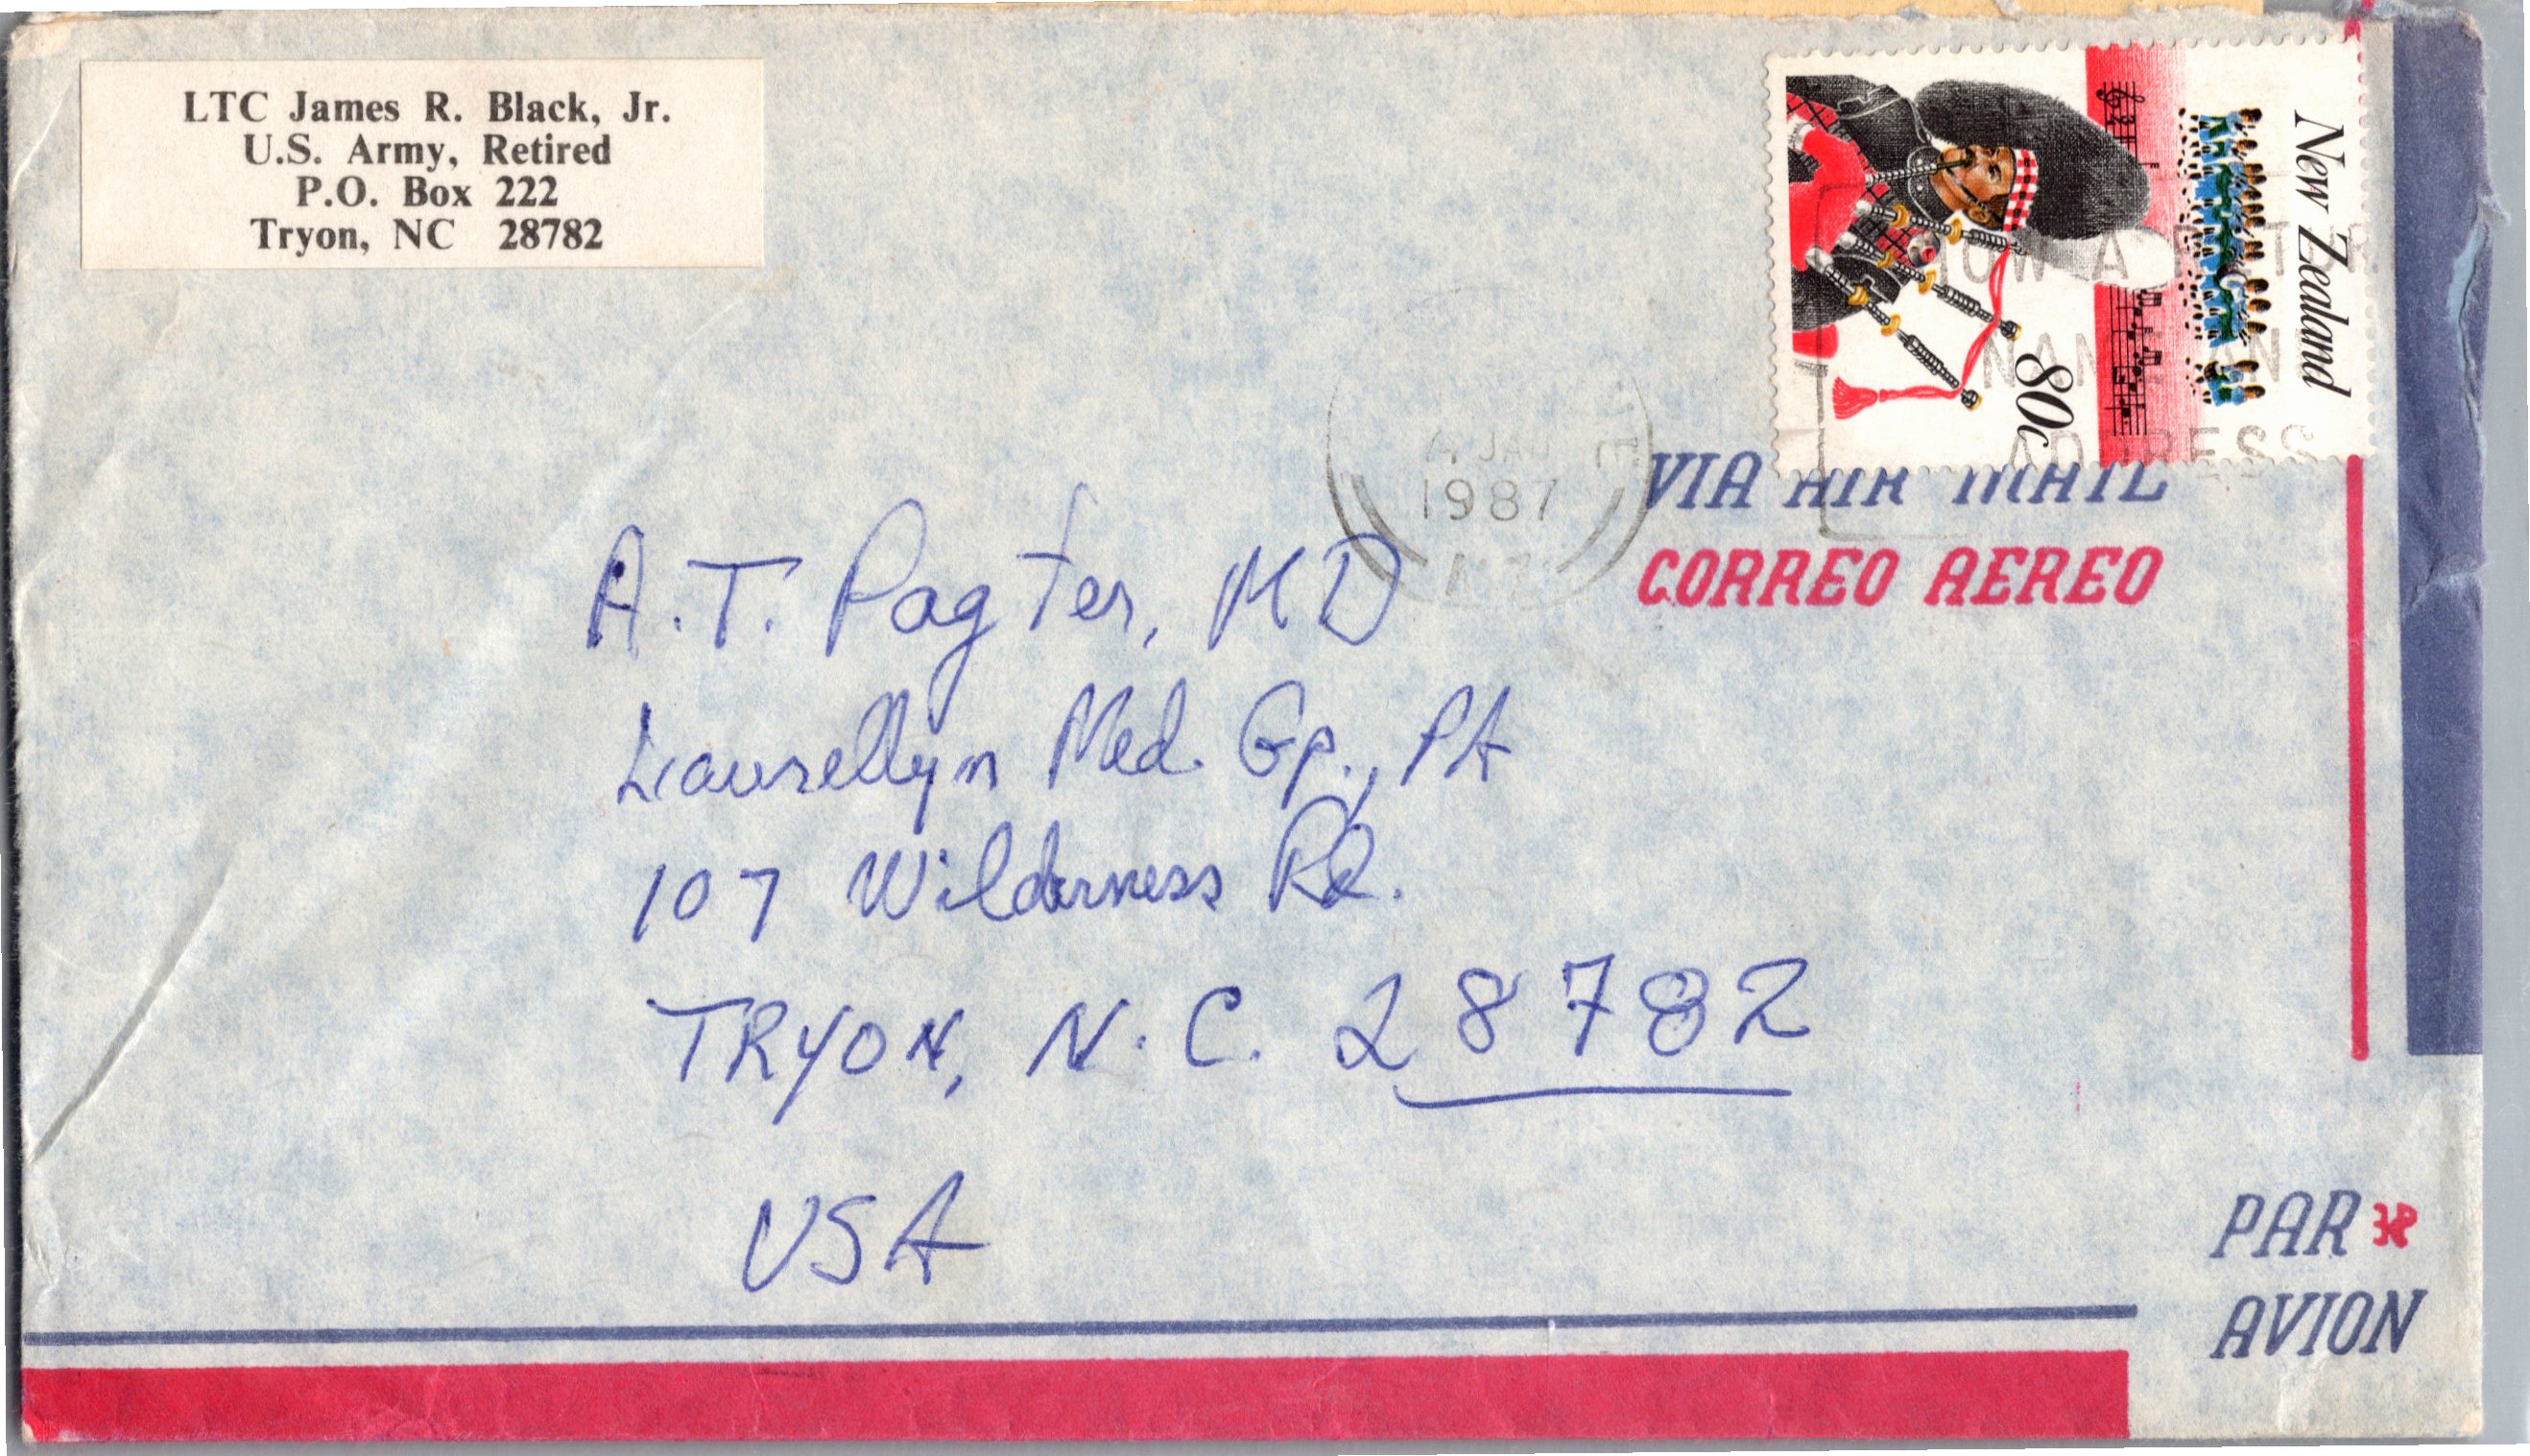 LTC James R. Black, Jr.
U.S. Army, Retired
P.O. Box 222
Tryon, NC 28782
New Zealand
80c
NAME AN
ADDRESS
JAN
1987
N.Z.
VIA AIR MAIL
CORREO AEREO
A.T. Pagter, MD
Laurellyn Med. Gp., PA
107 Wilderness Rd.
TRYON, N.C. 28782
USA
PAR
AVION